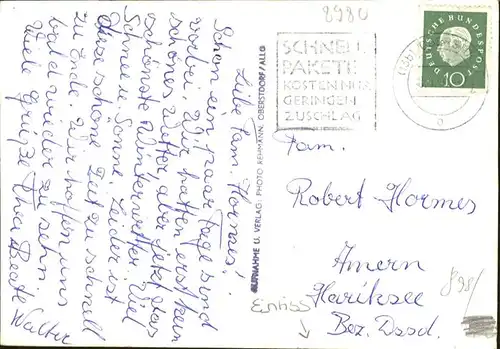 8980
Liebe Fam. Hormes!
Schon ein paar Tage sind
vorbei. Wir hatten erst kein
schönes Wetter aber jetzt das
schönste Winterwetter. Viel
Schnee u. Sonne. Leider ist
diese schöne Zeit zu schnell
zu Ende. Wir hoffen uns
bald wieder zu sehn.
Viele Grüße Ihre Beate
Walter
AUFNAHME U. VERLAG: PHOTO REHMANN, OBERSTDORF/ALLG.
SCHNELL
PAKETE
KOSTEN NUR
GERINGEN
ZUSCHLAG
DEUTSCHE BUNDESPOST
10
Fam.
Robert Hormes
Amern
Hariksee
Bez. Dssd.